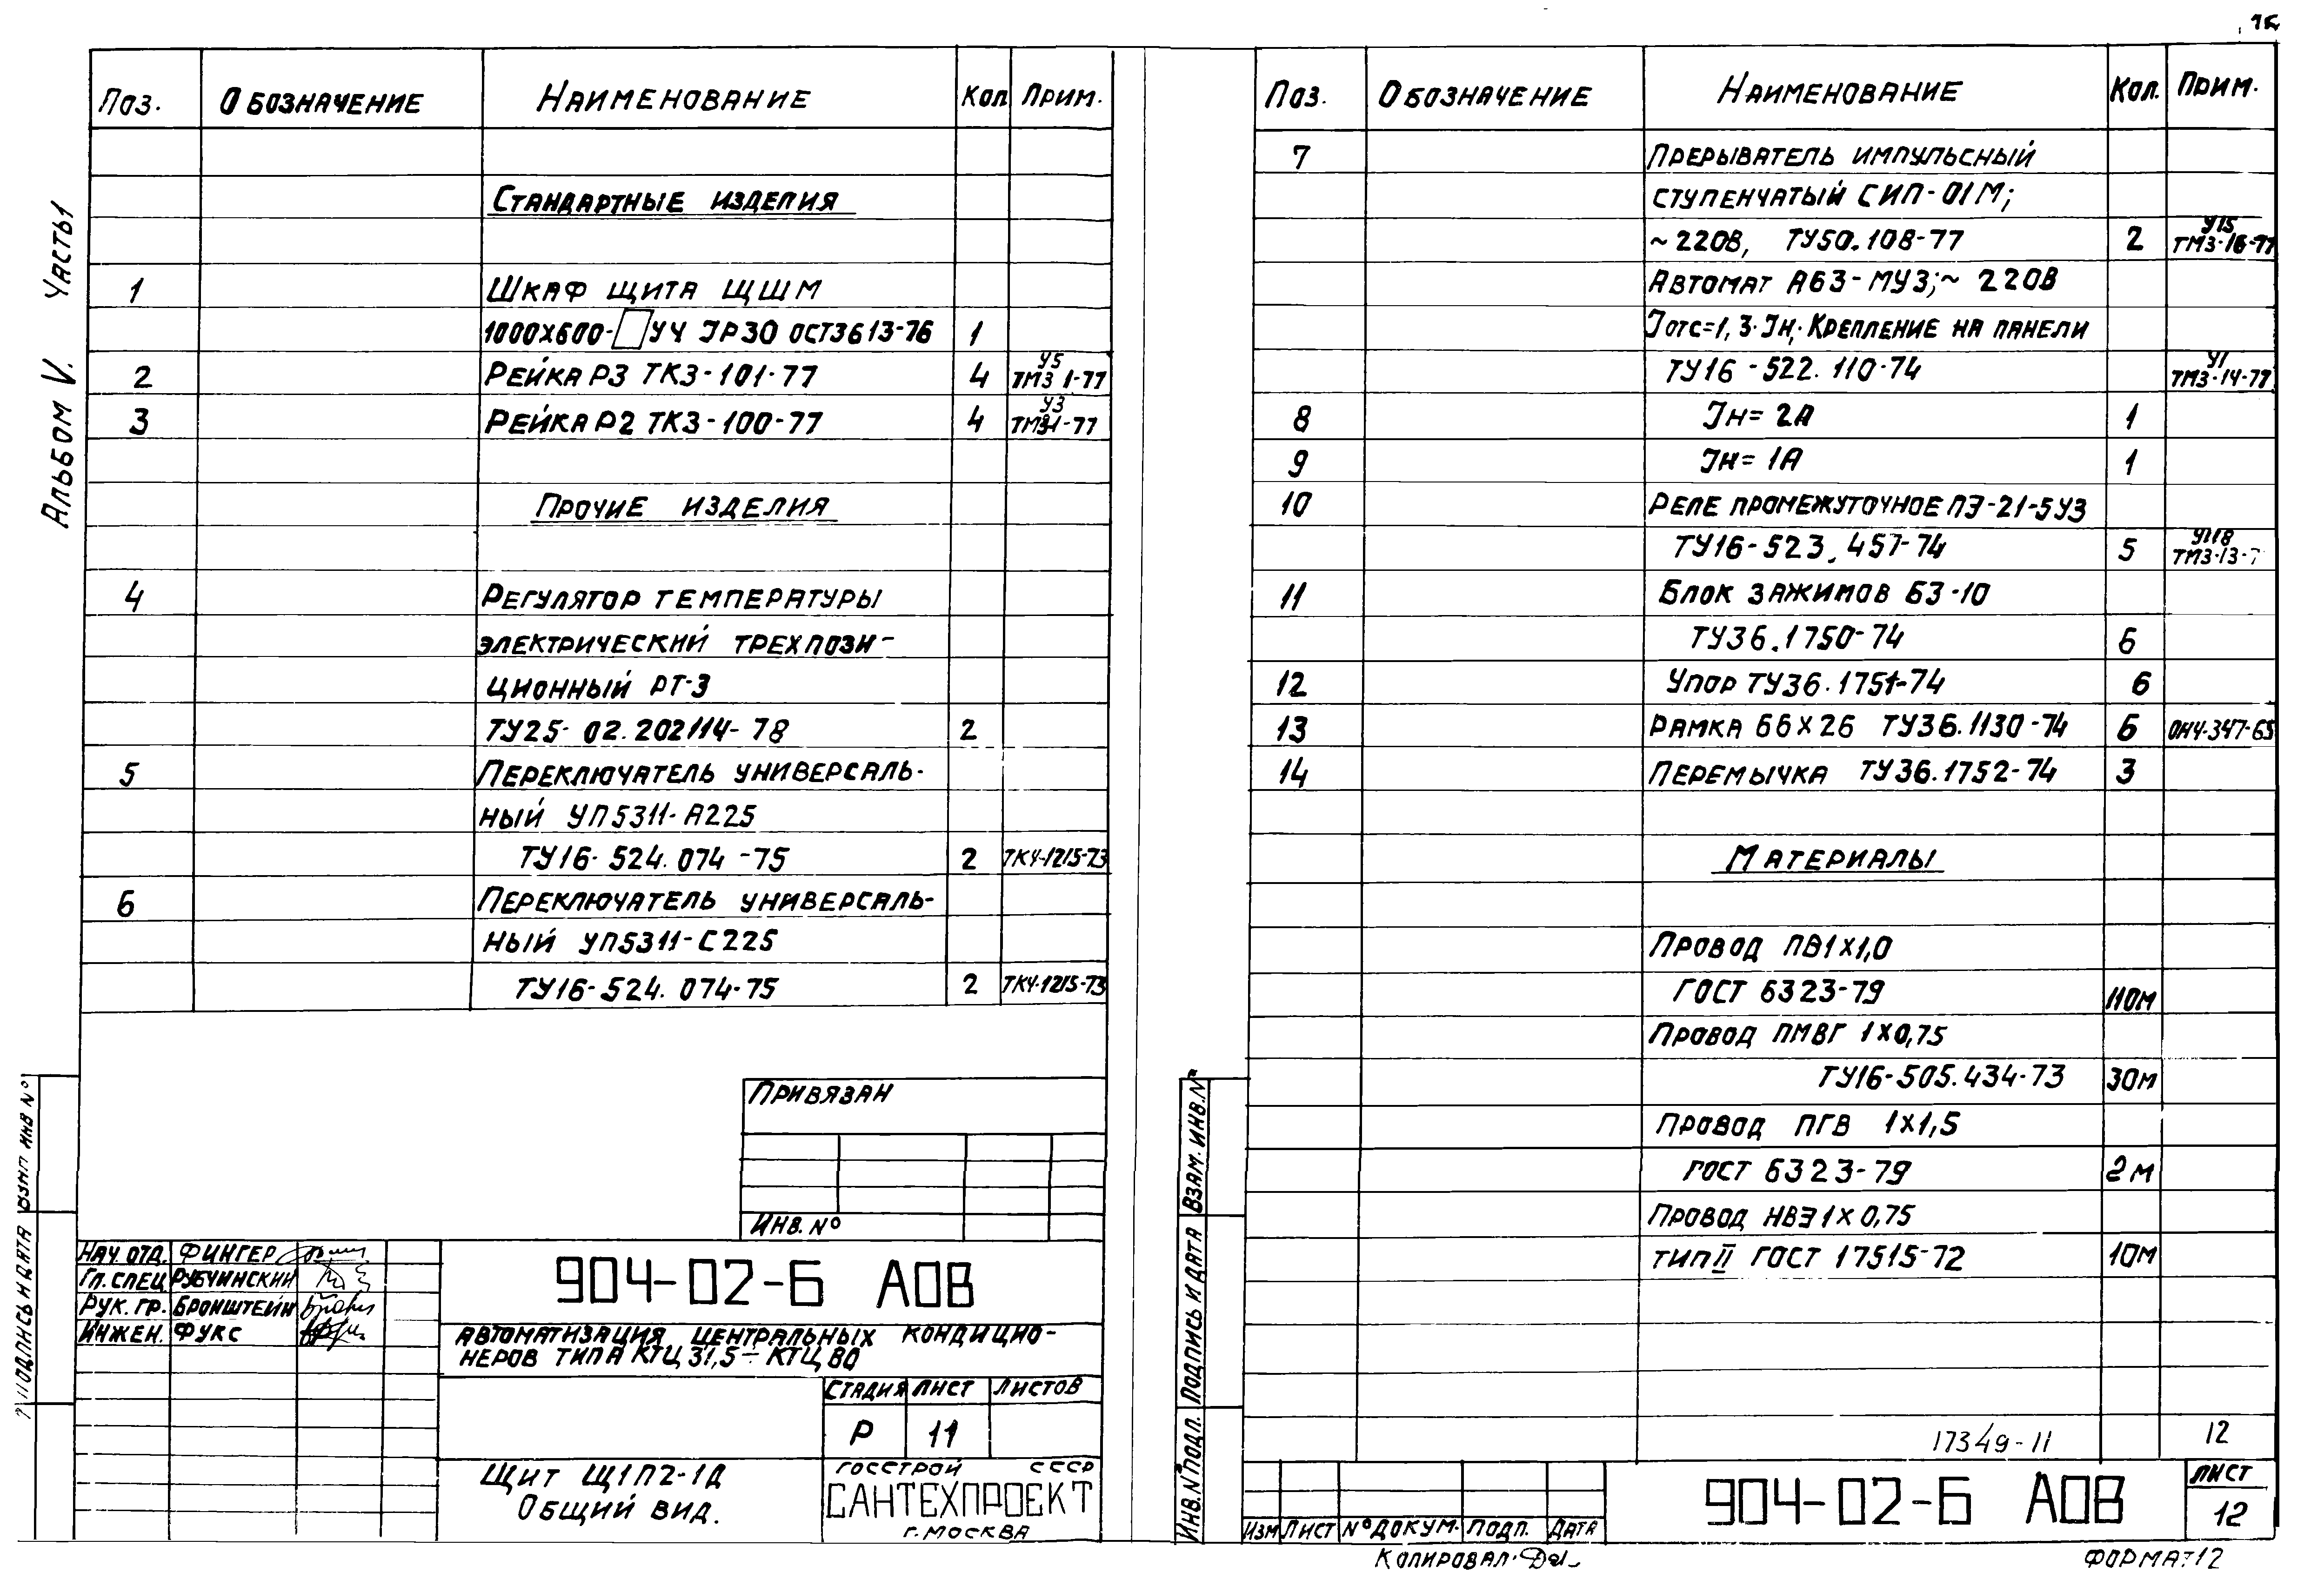 Альбом V. Часть 1
Поз. Обозначение Наименование Кол Прим.
Стандартные изделия
1 Шкаф щита ЩШМ
1000х600-□ УЧ IP30 ОСТ3613-76 1
2 Рейка Р3 ТК3-101-77 4 У5 ТМ3 1-77
3 Рейка Р2 ТК3-100-77 4 У3 ТМ3-1-77
Прочие изделия
4 Регулятор температуры
электрический трехпози-
ционный РТ-3
ТУ25-02.202114-78 2
5 Переключатель универсаль-
ный УП5311-А225
ТУ16-524.074-75 2 ТК4-1215-73
6 Переключатель универсаль-
ный УП5311-С225
ТУ16-524.074-75 2 ТК4-1215-73
Привязан
Инв. №
Нач. отд. Фингер
Гл. спец Рубчинский
Рук. гр. Бронштейн
Инжен. Фукс
904-02-Б АОВ
Автоматизация центральных кондицио-
неров типа КТЦ 31,5 ÷ КТЦ 80
Стадия Лист Листов
Р 11
Щит Щ1П2-1Д
Общий вид.
Госстрой СССР
САНТЕХПРОЕКТ
г. Москва
Подпись и дата Взам инв №
Поз. Обозначение Наименование Кол. Прим.
7 Прерыватель импульсный
ступенчатый СИП-01М;
~220В, ТУ50.108-77 2 У15 ТМ3-16-77
Автомат А63-МУ3; ~220В
Jотс=1,3·Jн; Крепление на панели
ТУ16-522.110-74 У1 ТМ3-14-77
8 Jн=2А 1
9 Jн=1А 1
10 Реле промежуточное ПЭ-21-5У3
ТУ16-523.457-74 5 У118 ТМ3-13-7
11 Блок зажимов БЗ-10
ТУ36.1750-74 6
12 Упор ТУ36.1751-74 6
13 Рамка 66х26 ТУ36.1130-74 6 ОН4-347-65
14 Перемычка ТУ36.1752-74 3
Материалы
Провод ПВ1х1,0
ГОСТ 6323-79 110м
Провод ПМВГ 1х0,75
ТУ16-505.434-73 30м
Провод ПГВ 1х1,5
ГОСТ 6323-79 2м
Провод НВЭ 1х0,75
тип II ГОСТ 17515-72 10м
17349-11 12
Инв. № подл. Подпись и дата Взам. инв. №
Изм Лист № докум. Подп. Дата
904-02-Б АОВ
Лист
12
Копировал
Формат 12